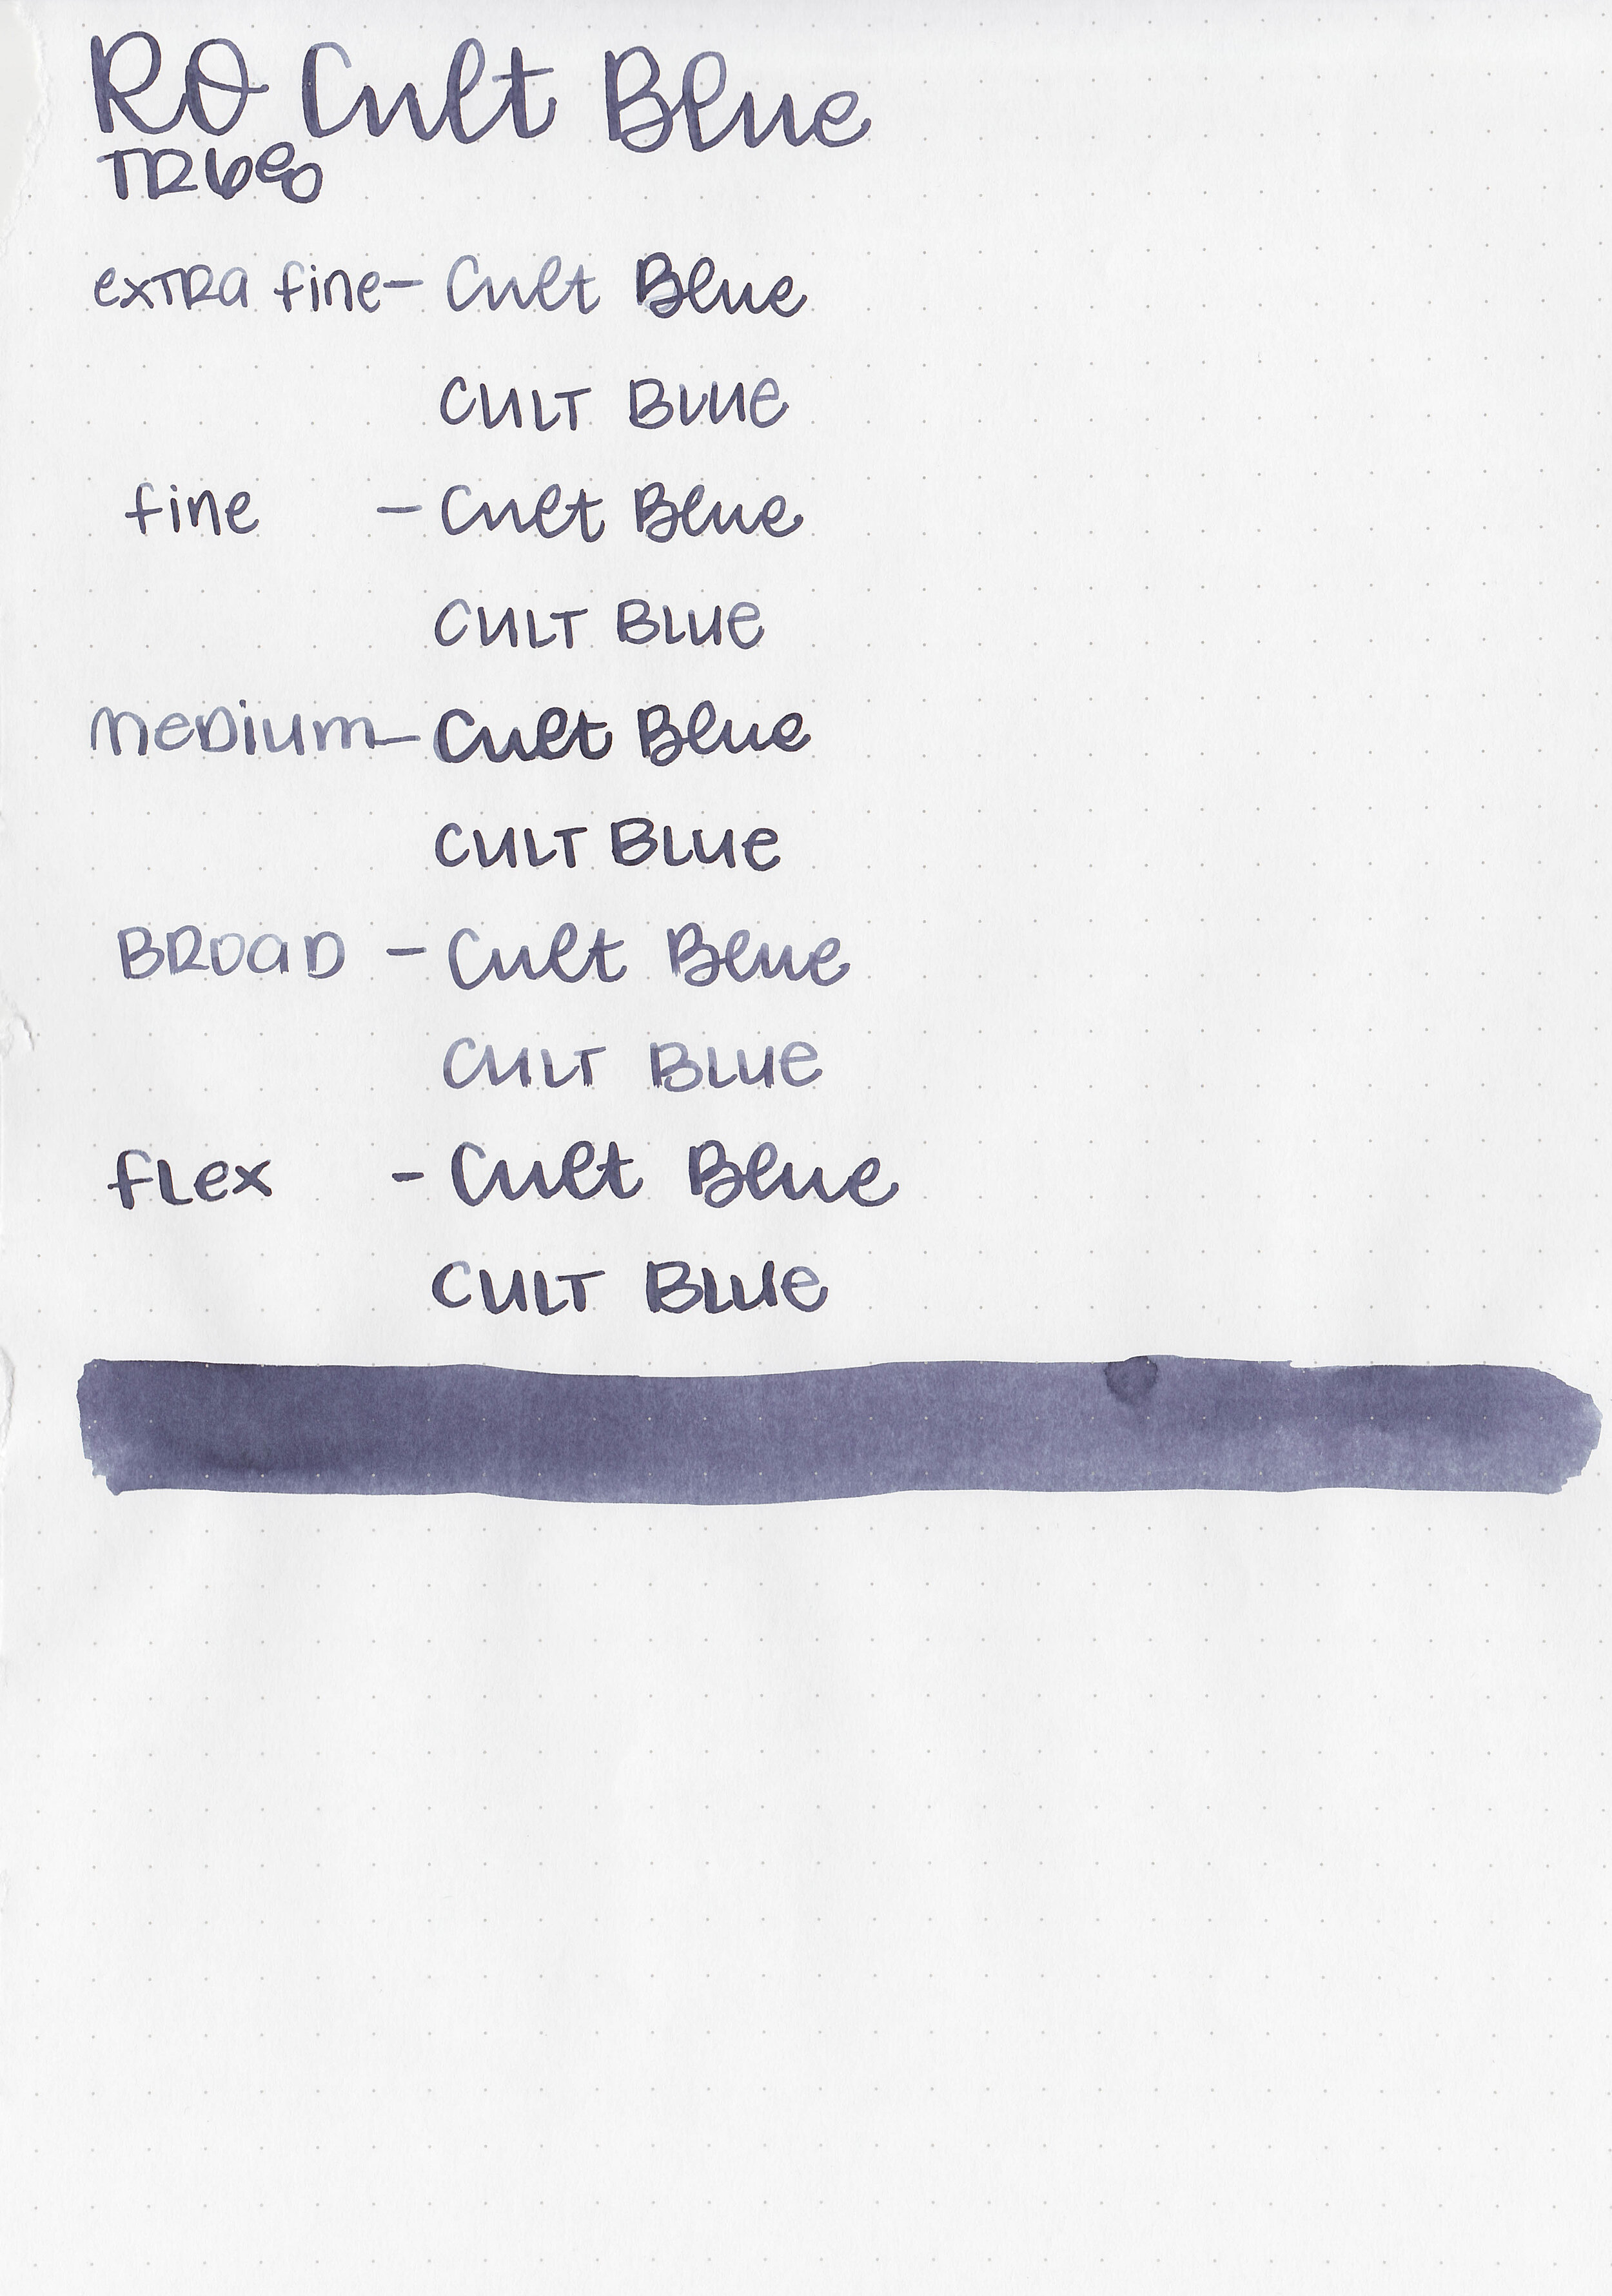 RO Cult Blue
TR68
extra fine - Cult Blue
CULT BLUE
fine - Cult Blue
CULT BLUE
medium - Cult Blue
CULT BLUE
BROAD - Cult Blue
CULT BLUE
flex - Cult Blue
CULT BLUE